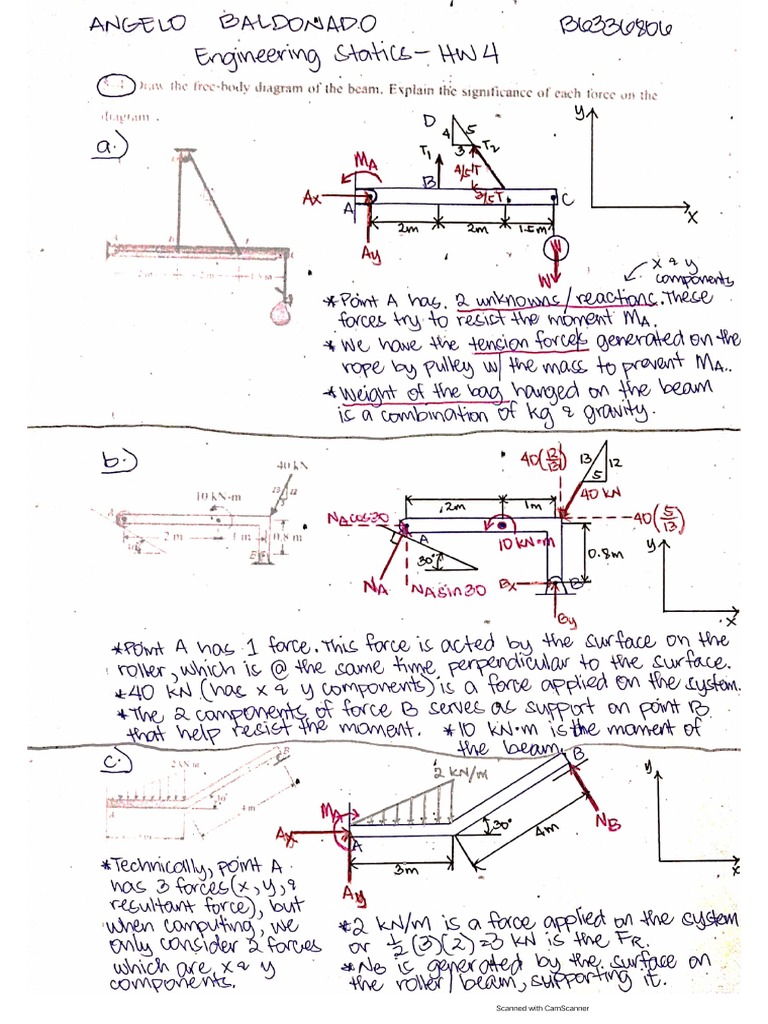 ANGELO BALDONADO B6336806
Engineering Statics - HW 4
Draw the free-body diagram of the beam. Explain the significance of each force on the
diagram .
a.)
D 4 5 3
T1 T2
MA
4/5T
3/5T
B
Ax
A
C
2m 2m 1.5m
Ay
W
W
y
x
x & y
components
*Point A has 2 unknowns/reactions. These
forces try to resist the moment MA.
*We have the tension forces generated on the
rope by pulley w/ the mass to prevent MA.
*Weight of the bag hanged on the beam
is a combination of kg & gravity.
b.)
40 kN
13 12
10 kN·m
A
2 m 1 m 0.8 m
B
40(12/13) 13 12
5
40 kN
2m 1m
NAcos30
40(5/13)
A
10 kN·m
0.8m
30°
NA NAsin30
Bx B
By
y
x
*Point A has 1 force. This force is acted by the surface on the
roller, which is @ the same time perpendicular to the surface.
*40 kN (has x & y components) is a force applied on the system.
*The 2 components of force B serves as support on point B
that help resist the moment. *10 kN·m is the moment of
the beam.
c.)
2 kN/m
B
30°
4 m
A
2 kN/m
B
MA
Ax
A
30°
4m
NB
3m
Ay
y
x
*Technically, point A
has 3 forces (x, y, &
resultant force), but
when computing, we
only consider 2 forces
which are x & y
components.
*2 kN/m is a force applied on the system
or ½(3)(2)=3 kN is the FR.
*NB is generated by the surface on
the roller/beam, supporting it.
Scanned with CamScanner